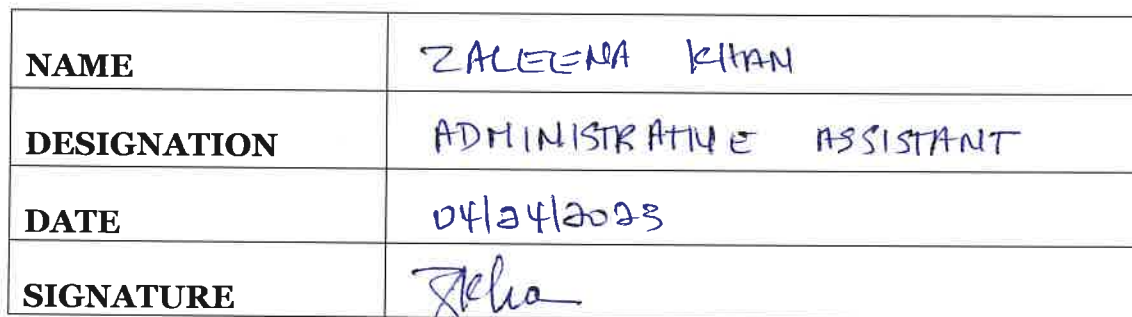 NAME ZALEENA KHAN
DESIGNATION ADMINISTRATIVE ASSISTANT
DATE 04/24/2023
SIGNATURE ZKha